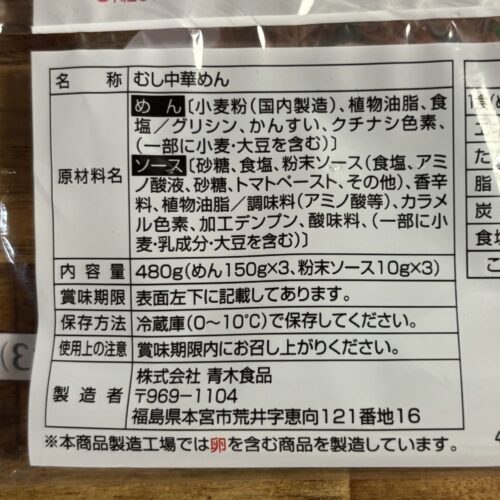 名称 むし中華めん
原材料名
めん〔小麦粉(国内製造)、植物油脂、食
塩/グリシン、かんすい、クチナシ色素、
(一部に小麦・大豆を含む)〕
ソース〔砂糖、食塩、粉末ソース(食塩、アミ
ノ酸液、砂糖、トマトペースト、その他)、香辛
料、植物油脂/調味料(アミノ酸等)、カラメ
ル色素、加工デンプン、酸味料、(一部に小
麦・乳成分・大豆を含む)〕
内容量 480g(めん150g×3、粉末ソース10g×3)
賞味期限 表面左下に記載してあります。
保存方法 冷蔵庫(0~10℃)で保存してください。
使用上の注意 賞味期限内にお召し上がりください。
製造者
株式会社 青木食品
〒969-1104
福島県本宮市荒井字恵向121番地16
※本商品製造工場では卵を含む商品を製造しています。
た
脂
炭
食塩
こ
3)